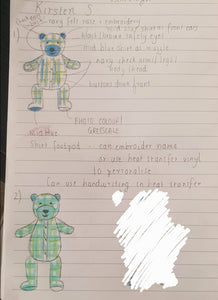 Kirsten S
navy felt nose + embroidery
1)
black/brown safety eyes
mid blue shirt as muzzle
navy check arms/legs/
body/head
buttons down front
mid blue
PHOTO COLOUR/
GREYSCALE
Shirt footpad - can embroider name
or use heat transfer vinyl
to personalise
Can use handwriting in heat transfer
2)